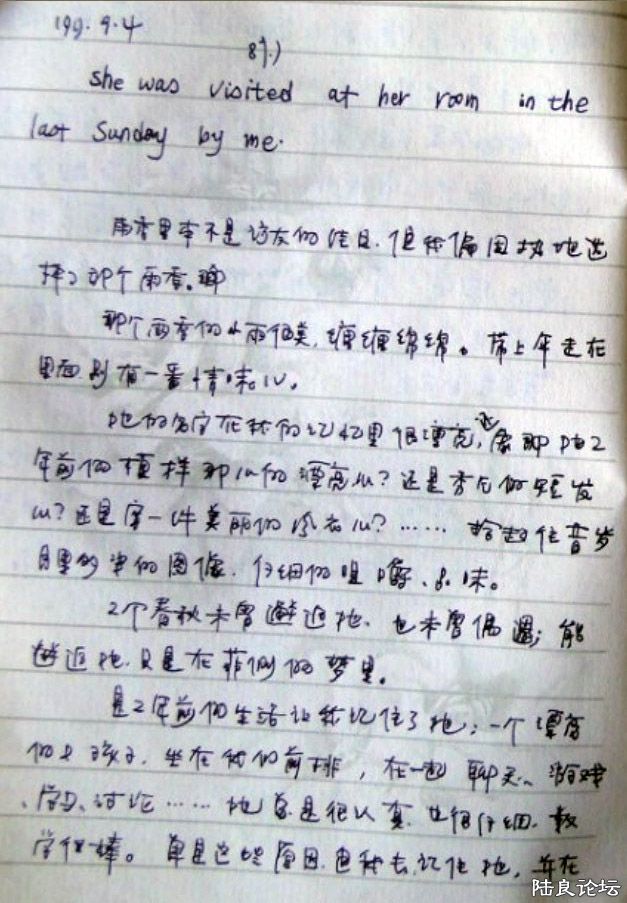 199. 9.4
8个)
She was visited at her room in the
last Sunday by me.
雨季里本不是访友的佳日, 但我偏固执地选
择了那个雨季。
那个雨季的小雨很美, 缠缠绵绵。带上伞走在
里面别有一番情味儿。
她的名字在我的记忆里很漂亮, 还象那她2
年前的模样那么的漂亮么? 还是秀气的短发
么? 还是穿一件美丽的冷衣么? …… 拾起往昔岁
月里的图像, 仔细的咀嚼、品味。
2个春秋未曾邂逅她, 也未曾偶遇; 能
邂逅她, 只是在菲似的梦里。
是2年前的生活让我记住了她; 一个漂亮
的女孩子, 坐在我的前排, 在一起聊天、游戏
、学习、讨论…… 她总是很认真, 也很仔细, 数
学很棒。单是这些原因, 迫我去记住她, 并在
陆良论坛